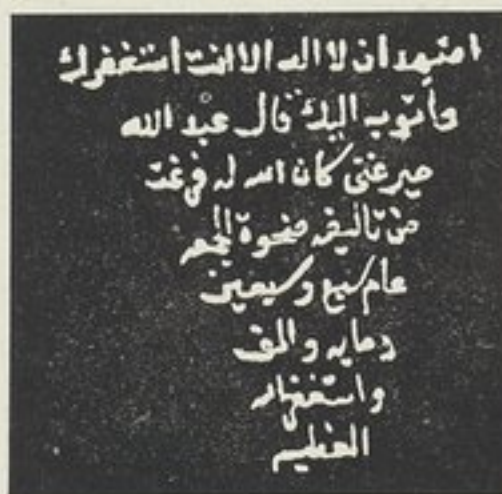 اشهد ان لا اله الا انت استغفرك
وأتوب اليك قال عبد الله
ميرغني كان الله له فرغت
من تاليفه ضحوة الجمعه
عام سبع وسبعين
ومايه والف
واستغفر الله
العظيم